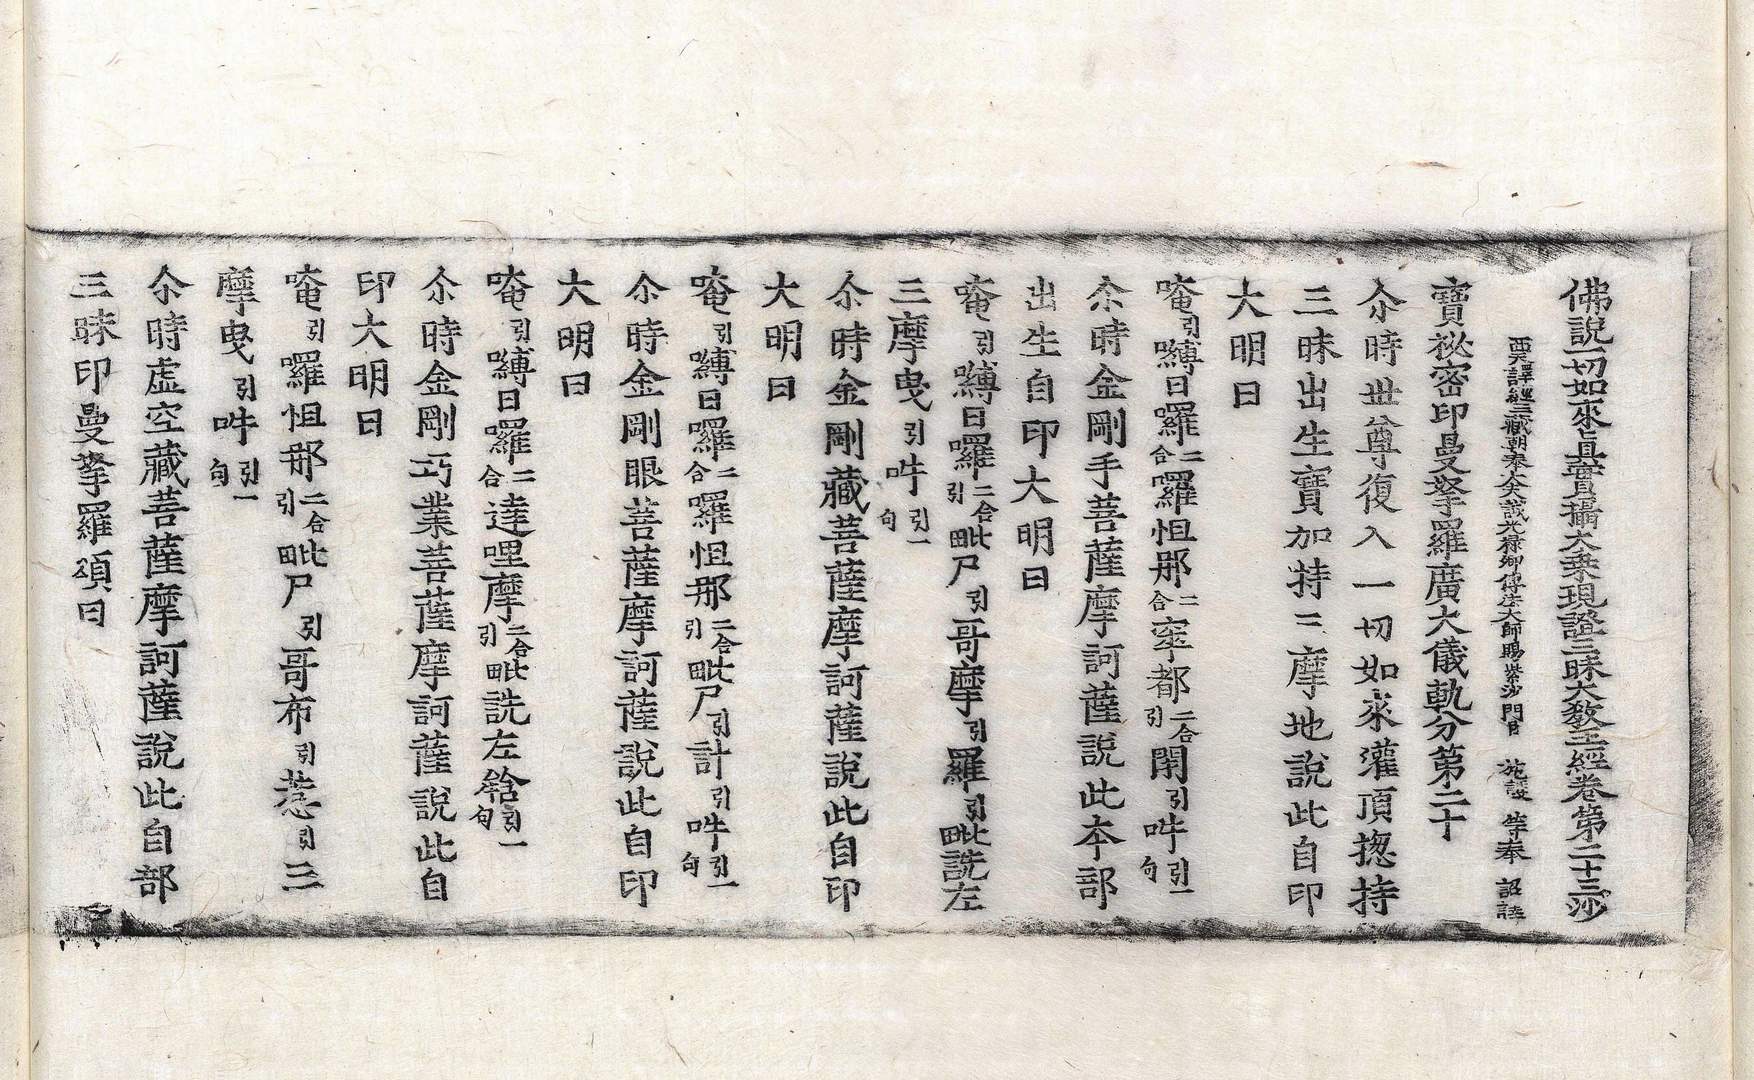 佛說一切如來真實攝大乘現證三昧大教王經卷第二十三沙
西天譯經三藏朝奉大夫試光祿卿傳法大師賜紫沙門臣 施護 等奉 詔譯
寶祕密印曼拏羅廣大儀軌分第二十
尒時世尊復入一切如來灌頂揔持
三昧出生寶加持三摩地說此自印
大明曰
唵引嚩日囉二合囉怛那二合窣都二合引閉引吽引一句
尒時金剛手菩薩摩訶薩說此本部
出生自印大明曰
唵引嚩日囉二合引毗尸引哥摩引羅引毗詵左
三摩曳引吽引一句
尒時金剛藏菩薩摩訶薩說此自印
大明曰
唵引嚩日囉二合囉怛那二合引毗尸引計引吽引一句
尒時金剛眼菩薩摩訶薩說此自印
大明曰
唵引嚩日囉二合達哩摩二合引毗詵左𤚥引一句
尒時金剛巧業菩薩摩訶薩說此自
印大明曰
唵引囉怛那二合引毗尸引哥布引惹引三
摩曳引吽引一句
尒時虛空藏菩薩摩訶薩說此自部
三昧印曼拏羅頌曰